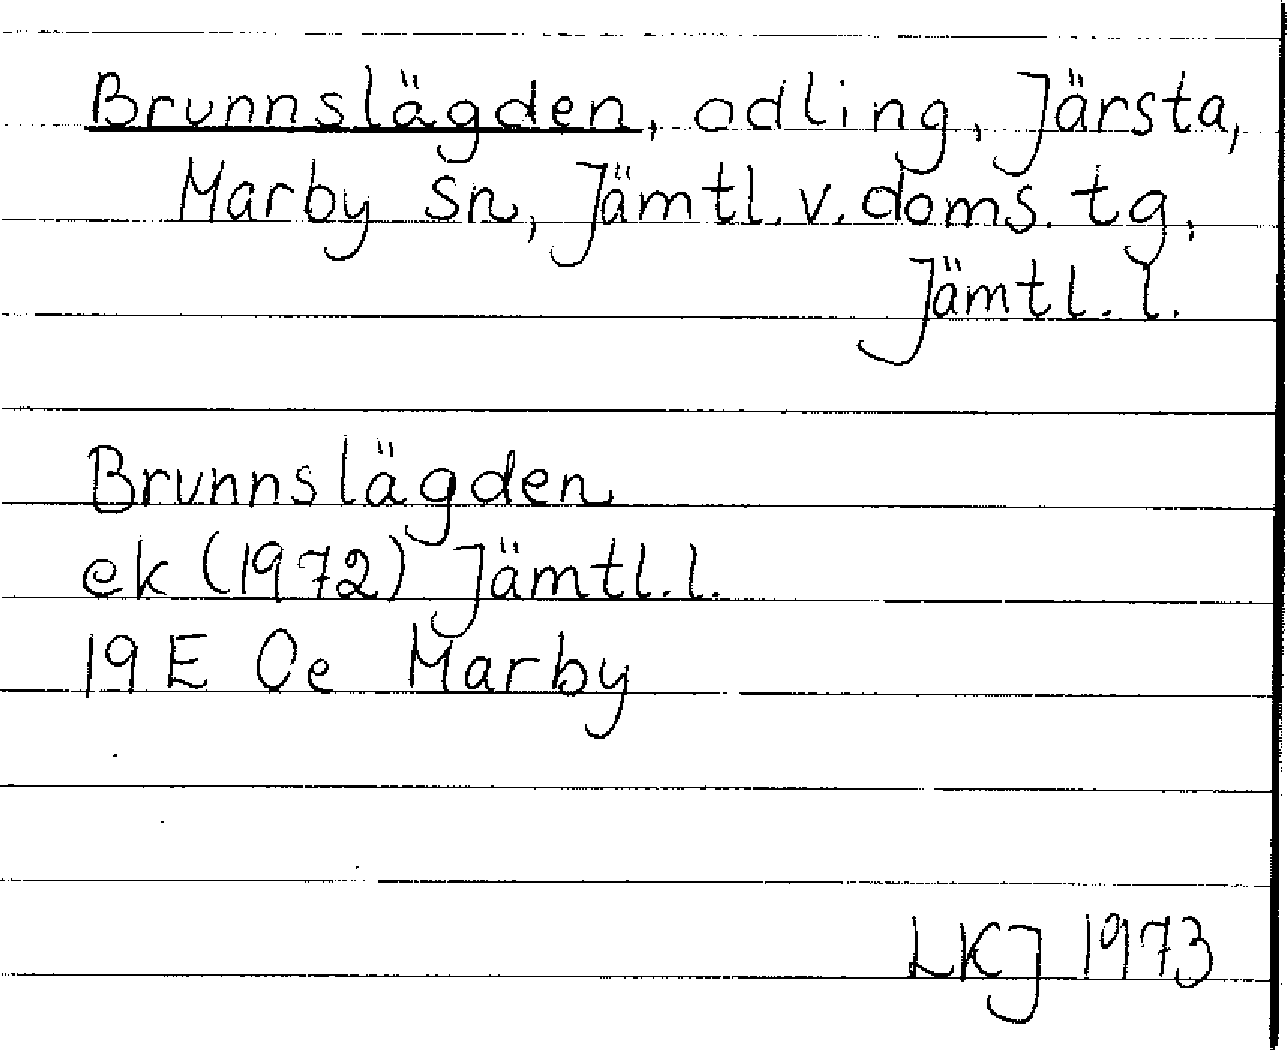 Brunnslägden, odling, Järsta,
Marby sn, Jämtl. v. doms. tg,
Jämtl. l.
Brunnslägden
ek (1972) Jämtl. l.
19 E 0e Marby
LKJ 1973